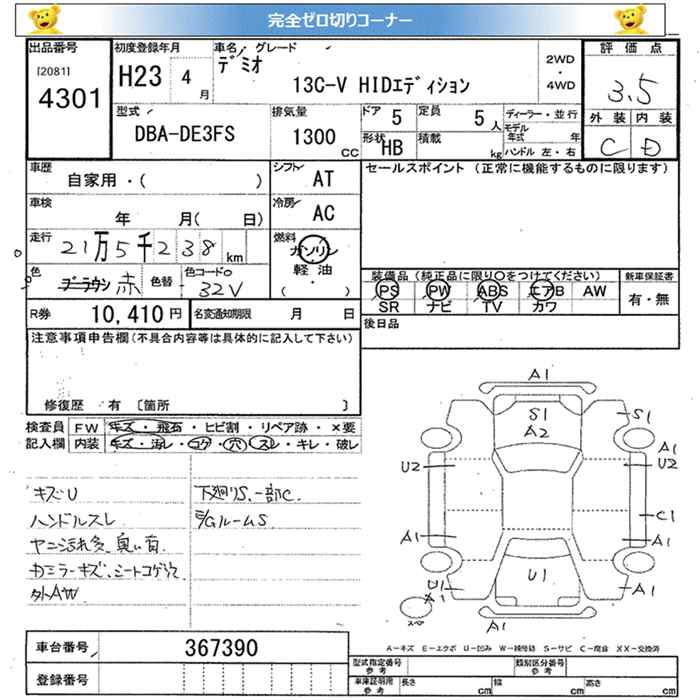 完全ゼロ切りコーナー
出品番号 初度登録年月 車名 グレード 評価点
[2081] 4301 H23 4月 デミオ 13C-V HIDエディション 2WD・4WD 3.5
型式 排気量 ドア 定員 ディーラー・並行 外装 内装
DBA-DE3FS 1300 CC 5 5人 モデル年式 年 C D
形状 HB 積載 kg ハンドル 左・右
車歴 自家用・( ) シフト AT セールスポイント (正常に機能するものに限ります)
車検 年 月( 日) 冷房 AC
走行 21万5千238km 燃料 ガソリン・軽油・( )
色 ブラウン 赤 色替 色コードNo 32V 装備品 (純正品に限り○をつけてください) 新車保証書
PS PW ABS エアB AW 有・無
SR ナビ TV カワ
R券 10,410円 名変通知期限 月 日 後日品
注意事項申告欄(不具合内容等は具体的に記入して下さい)
修復歴 有 〔箇所 〕
検査員 FW キズ・飛石・ヒビ割・リペア跡・×要
記入欄 内装 キズ・汚レ・コゲ・穴・スレ・キレ・破レ
キズU 下廻りS、一部C.
ハンドルスレ E/GルームS
ヤニ汚れ多、臭い有.
カミラーキズ、シートコゲ穴
外AW
A1
S1 A2 S1
A1
U2 U2
C1
A1 A1
U1 U1 A1
スペ
A1
A-キズ E-エクボ U-凹み W-補修跡 S-サビ C-腐食 XX-交換済
車台番号 367390
登録番号
型式指定番号 参考 類別区分番号 参考
車庫証明用 参考 長さ cm 幅 cm 高さ cm